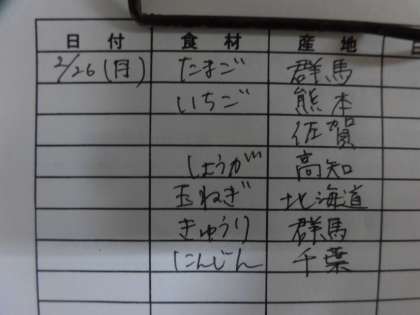 日付 食材 産地
2/26(月) たまご 群馬
いちご 熊本
佐賀
しょうが 高知
玉ねぎ 北海道
きゅうり 群馬
にんじん 千葉